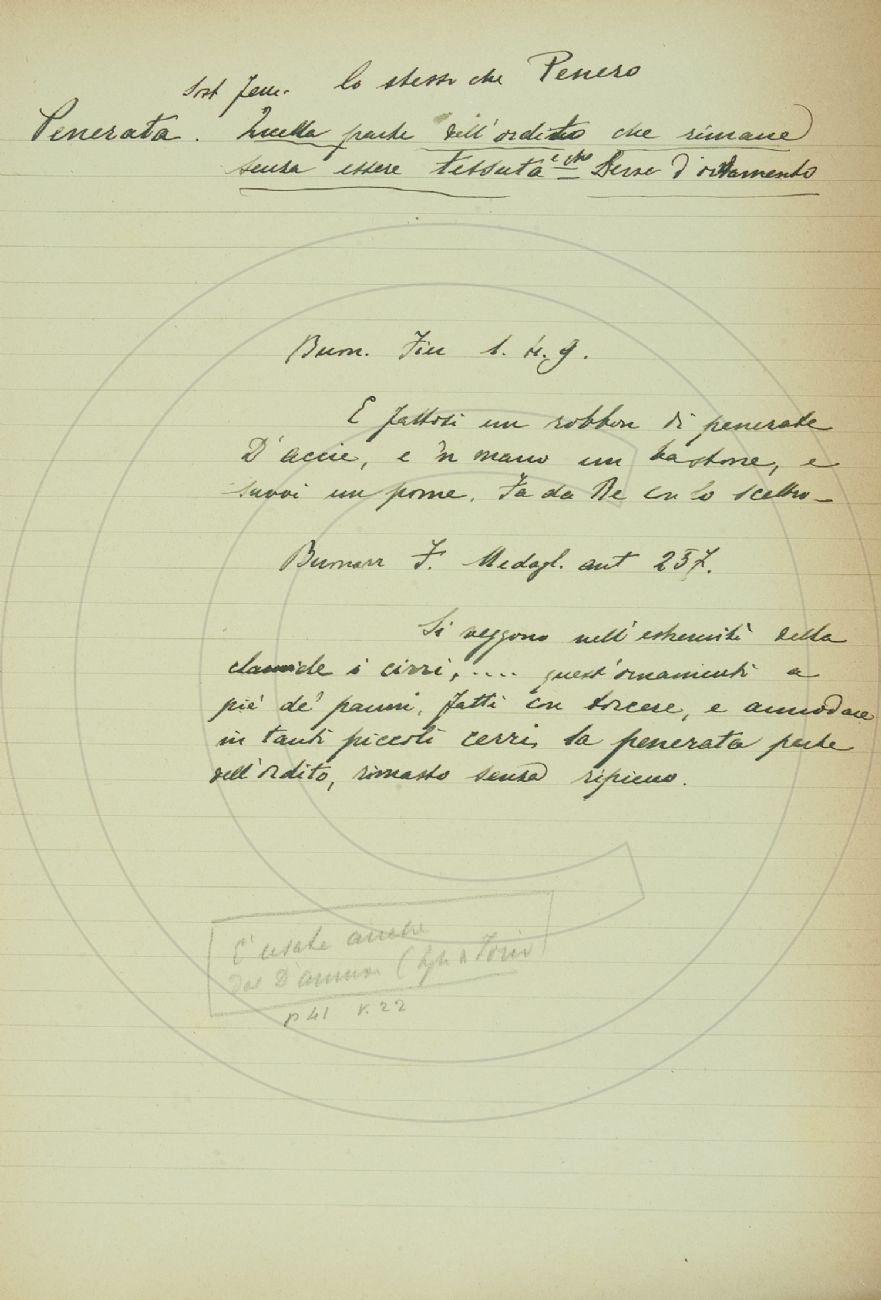 Sost fem. lo stesso che Penero
Penerata. Quella parte dell'ordito che rimane
senza essere tessuta e che serve d'ornamento
Buon. Fier 1. 4. 9.
E fattosi un robbon di penerate
D'accie, e 'n mano un bastone, e
suvvi un pome, Fa da Re con lo scettro —
Buonarr F. Medagl. ant 257.
Si veggono nell'estremità della
clamide i cirri, .... quest'ornamenti a
piè de' panni, fatti con torcere, e annodare
in tanti piccoli cerri, la penerata parte
dell'ordito, rimasto senza ripieno.
E' usata anche
dal D'Annun (Figlia di Iorio
p 41 v. 22